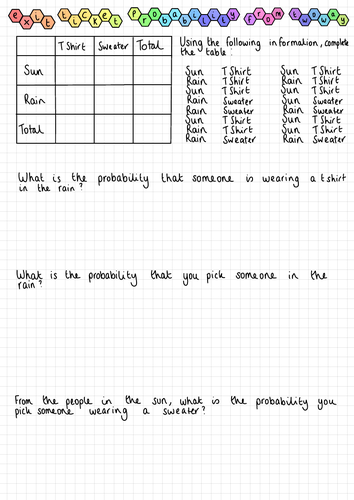 exit ticket probability from two way
T Shirt Sweater Total
Sun
Rain
Total
Using the following information, complete
the table:
Sun T Shirt Sun T Shirt
Rain T Shirt Rain T Shirt
Sun T Shirt Sun T Shirt
Rain Sweater Sun Sweater
Rain Sweater Rain Sweater
Sun T Shirt Sun T Shirt
Rain T Shirt Sun T Shirt
Rain Sweater Rain Sweater
What is the probability that someone is wearing a t shirt
in the rain?
What is the probability that you pick someone in the
rain?
From the people in the sun, what is the probability you
pick someone wearing a sweater?